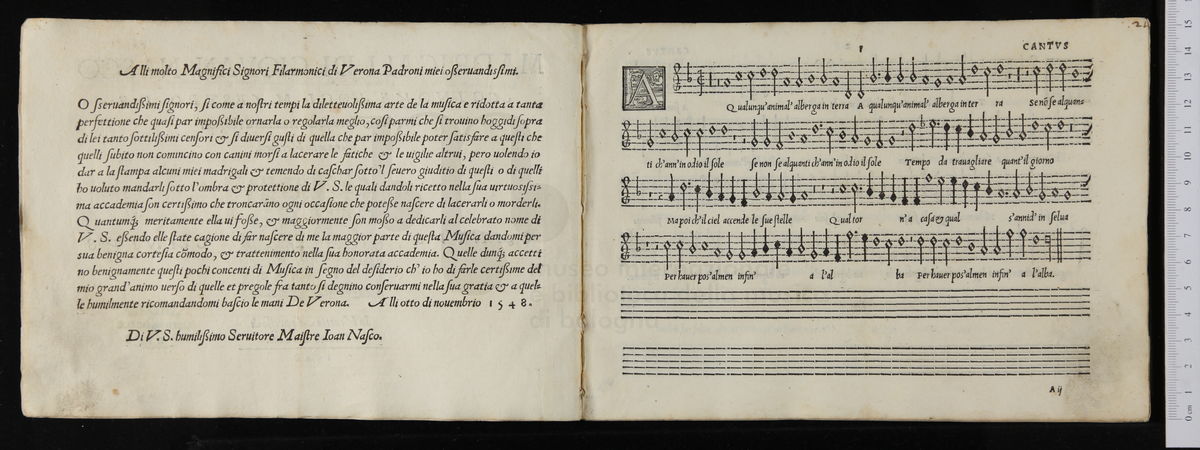 Alli molto Magnifici Signori Filarmonici di Verona Padroni miei oßeruandissimi.
O sseruandißimi signori, si come a nostri tempi la diletteuolißima arte de la musica e ridotta a tanta
perfettione che quasi par impoßibile ornarla o regolarla meglio, cosi parmi che si trouino hoggidi sopra
di lei tanto sottilißimi censori & si diuersi gusti di quella che par impoßibile poter satisfare a questi che
quelli subito non comincino con canini morsi a lacerare le fatiche & le uigilie altrui, pero uolendo io
dar a la stampa alcuni miei madrigali & temendo di caschar sotto'l seuero giuditio di questi o di quelli
ho uoluto mandarli sotto l'ombra & protettione di V. S. le quali dandoli ricetto nella sua uirtuosißi-
ma accademia son certißimo che troncaranno ogni occasione che poteße nascere di lacerarli o morderli.
Q uantumq; meritamente ella ui foße, & maggiormente son moßo a dedicarli al celebrato nome di
V. S. eßendo elle state cagione di far nascere di me la maggior parte di questa Musica dandomi per
sua benigna cortesia cōmodo, & trattenimento nella sua honorata accademia. Quelle dunq; accetti
no benignamente questi pochi concenti di Musica in segno del desiderio ch'io ho di farle certißime del
mio grand'animo uerso di quelle et pregole fra tanto si degnino conseruarmi nella sua gratia & a quel-
le humilmente ricomandandomi bascio le mani De Verona. Alli otto di nouembrio 1548.
Di V. S. humilißimo Seruitore Maistre Ioan Nasco.
1
CANTVS
A
Q ualunqu'animal' alberga in terra A qualunqu'animal' alberga in ter ra Se nō se alquan=
ti ch'ann'in odio il sole se non se alquanti ch'ann'in odio il sole Tempo da trauagliare quant'il giorno
Ma poi ch'il ciel accende le sue stelle Qual tor n'a casa & qual s'annid' in selua
Per hauer pos'almen infin' a l'al ba Per hauer pos'almen infin' a l'alba.
A ij